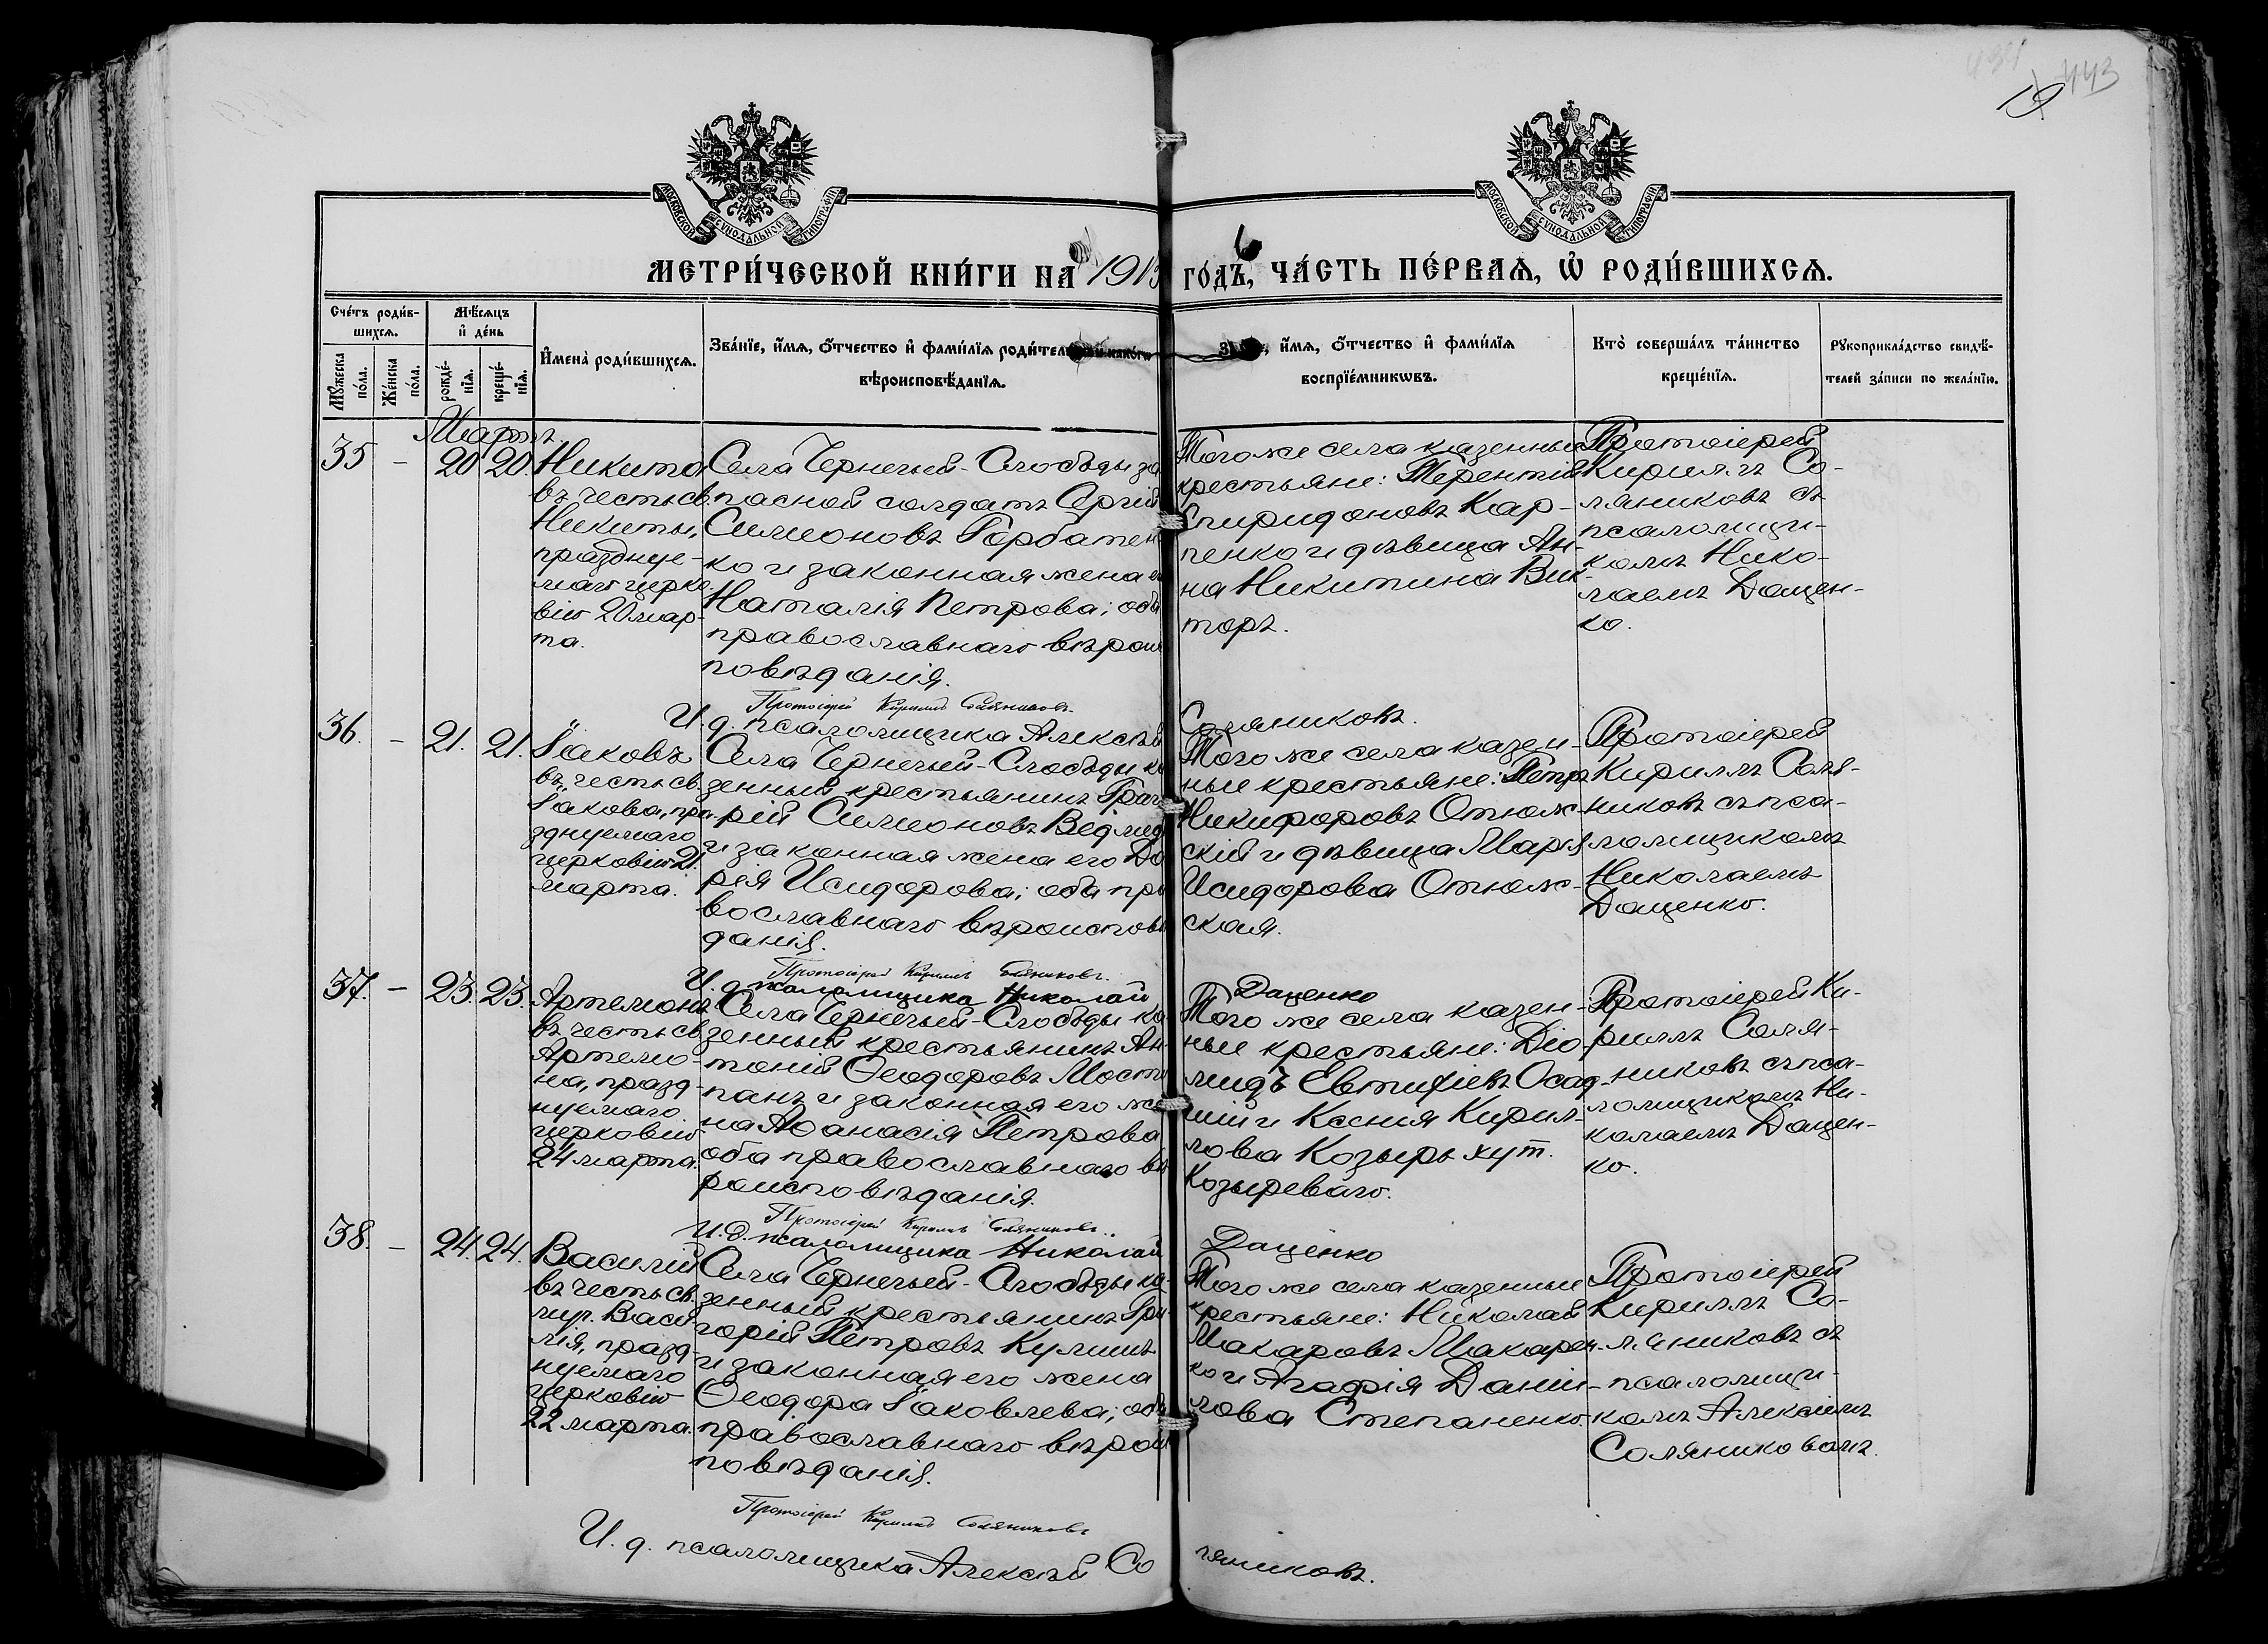 443
МОСКОВСКОЙ СѴНОДАЛЬНОЙ ТИПОГРАФІИ
МОСКОВСКОЙ СѴНОДАЛЬНОЙ ТИПОГРАФІИ
МЕТРИ́ЧЕСКОЙ КНИ́ГИ НА 1913 ГО́ДЪ, ЧА́СТЬ ПЕ́РВАѦ, Ѽ РОДИ́ВШИХСѦ.
Сче́тъ роди́в-
шихсѧ.
Мꙋжеска по́ла.
Же́нска по́ла.
Мѣ́сѧцъ
и҆ де́нь
рожде́-
нїѧ.
креще́-
нїѧ.
И҆мена̀ роди́вшихсѧ.
Зва́нїе, и҆́мѧ, ѻ҆́тчество и҆ фами́лїѧ роди́тел
вѣроисповѣ́данїѧ.
и҆́мѧ, ѻ҆́тчество и҆ фами́лїѧ
воспрїе́мникѡвъ.
Кто̀ соверша́лъ та́инство
креще́нїѧ.
Рꙋкоприкла́дство свидѣ́-
телей за́писи по жела́нїю.
Мартъ
35 – 20 20.
Никита
въ честь св.
Никиты,
празднуе-
маго церко-
вію 20 мар-
та.
Села Чернечьей-Слободы за
пасной солдатъ Сергій
Симеоновъ Горбатен
ко и законная жена е
Наталія Петрова; оба
православнаго вѣроис
повѣданія.
Того же села казенные
крестьяне: Терентій
Спиридоновъ Кар-
пенко и дѣвица Ан-
на Никитина Вик-
торъ.
Протоіерей
Кириллъ Со-
ляниковъ съ
псаломщи-
комъ Нико-
лаемъ Доцен-
ко.
Протоіерей Кириллъ Соляниковъ.
И. д. псаломщика Алексѣй Соляниковъ.
36. – 21. 21.
Іаковъ
въ честь св.
Іакова, пра-
зднуемаго
церковію 21
марта.
Села Чернечьей-Слободы ка
зенный крестьянинъ Григо
рій Симеоновъ Ведмед
и законная жена его До
рея Исидорова; оба пра
вославнаго вѣроисповѣ
данія.
Того же села казен-
ные крестьяне: Петръ
Никифоровъ Отюж-
скій и дѣвица Марія
Исидорова Отюж-
ская.
Протоіерей
Кириллъ Соля-
никовъ съ пса-
ломщикомъ
Николаемъ
Доценко.
Протоіерей Кириллъ Соляниковъ.
И. д. псаломщика Николай Доценко
37. – 23. 23.
Артемонъ
въ честь св
Артемо-
на, празд-
нуемаго
церковію
24 марта.
Села Чернечьей-Слободы ка
зенный крестьянинъ Ан-
тоній Ѳеодоровъ Мости
панъ и законная его же
на Аѳанасія Петрова
оба православнаго вѣ
роисповѣданія.
Того же села казен-
ные крестьяне: Діо-
мидъ Евтихіевъ Осад-
чій и Ксенія Кирил-
лова Козырь хут.
Козыреваго.
Протоіерей Ки-
риллъ Соля-
никовъ съ пса-
ломщикомъ Ни-
колаемъ Доцен-
ко.
Протоіерей Кириллъ Соляниковъ.
И. д. псаломщика Николай Доценко
38. – 24. 24.
Василій
въ честь св.
муч. Васи
лія, празд-
нуемаго
церковію
22 марта.
Села Чернечьей-Слободы ка-
зенный крестьянинъ Гри-
горій Петровъ Кулишъ
и законная его жена
Ѳеодора Іаковлева; оба
православнаго вѣроис
повѣданія.
Того же села казенные
крестьяне: Николай
Макаровъ Макарен-
ко и Агафія Даніи-
лова Степаненко.
Протоіерей
Кириллъ Со-
ляниковъ съ
псаломщи-
комъ Алексѣемъ
Соляниковымъ.
Протоіерей Кириллъ Соляниковъ
И. д. псаломщика Алексѣй Соляниковъ.